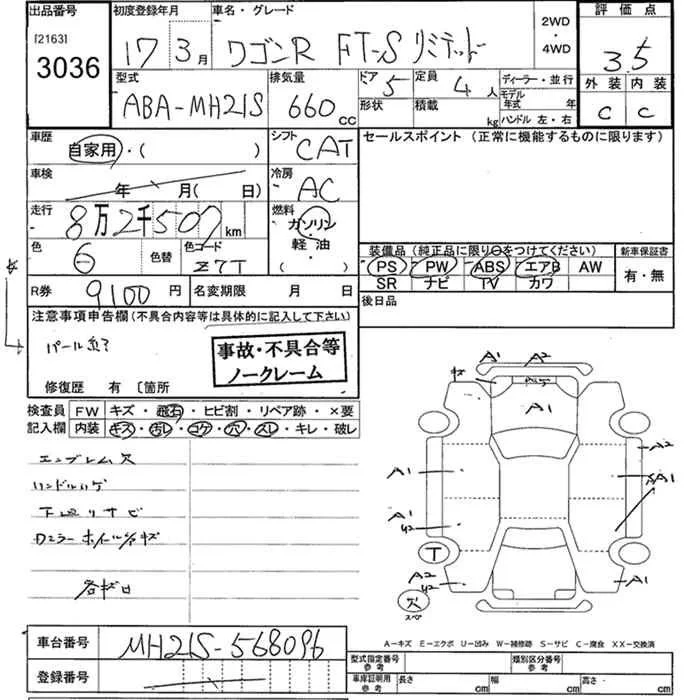 出品番号 初度登録年月 車名・グレード 2WD・4WD 評価点
[2163]
3036 17 3月 ワゴンR FT-S リミテッド 3.5
型式 排気量 ドア 5 定員 4人 ディーラー・並行 外装 内装
ABA-MH21S 660cc 形状 積載 kg モデル年式 年 C C
ハンドル 左・右
車歴 シフト セールスポイント (正常に機能するものに限ります)
自家用・( ) CAT
車検 冷房
年 月( 日) AC
走行 燃料
8万2千507km ガソリン
軽油
( )
色 6 色替 色コード Z7T
装備品(純正品に限り○をつけてください) 新車保証書
PS PW ABS エアB AW 有・無
SR ナビ TV カワ
R券 9100円 名変期限 月 日 後日品
注意事項申告欄(不具合内容等は具体的に記入して下さい)
パール
事故・不具合等
ノークレーム
修復歴 有 〔箇所
検査員 FW キズ・飛石・ヒビ割・リペア跡・×要
記入欄 内装 キズ・汚レ・コゲ・穴・スレ・キレ・破レ
エンブレム欠
ハンドルハゲ
下廻リサビ
ホイールキズ
各サビ
A1 A2
A1
A2
A1
A1
A1
T
A2 A1
穴
スペア
A-キズ E-エクボ U-凹み W-補修跡 S-サビ C-腐食 XX-交換済
車台番号 MH21S-568096
型式指定番号 参考 類別区分番号 参考
登録番号
車庫証明用 参考 長さ cm 幅 cm 高さ cm